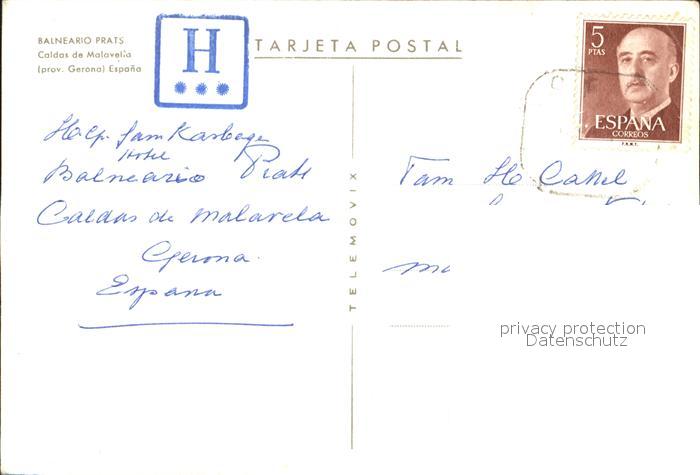 BALNEARIO PRATS
Caldas de Malavella
(prov. Gerona) España
H
TARJETA POSTAL
5
PTAS
ESPAÑA
CORREOS
F.N.M.T.
fam Karbage
Hotel
Balneario Prats
Caldas de Malavela
Gerona.
Espana
TELEMOVIX
Fam
privacy protection
Datenschutz